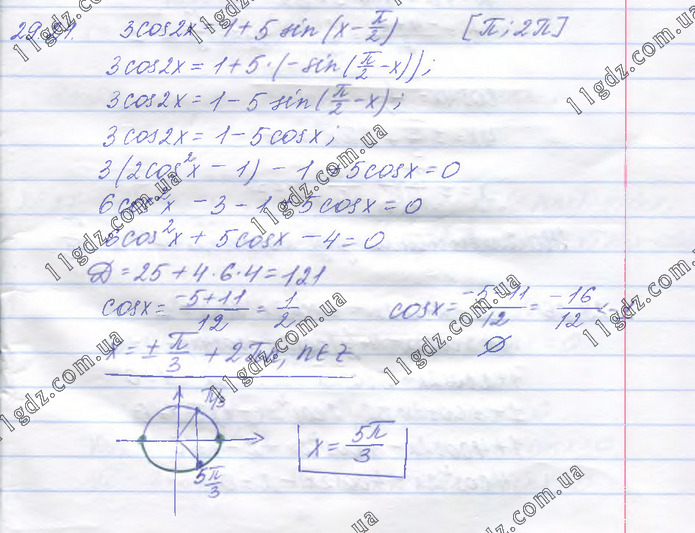 29.21. 3cos2x = 1+5 sin(x-π/2) [π; 2π]
3cos2x = 1+5·(-sin(π/2-x));
3cos2x = 1-5sin(π/2-x);
3cos2x = 1-5cosx;
3(2cos²x - 1) - 1 + 5cosx = 0
6cos²x - 3 - 1 + 5cosx = 0
6cos²x + 5cosx - 4 = 0
D = 25 + 4·6·4 = 121
cosx = (-5+11)/12 = 1/2 cosx = (-5-11)/12 = -16/12 < -1
x = ± π/3 + 2πn, n∈Z ∅
π/3
x = 5π/3
5π/3
11gdz.com.ua
11gdz.com.ua
11gdz.com.ua
11gdz.com.ua
11gdz.com.ua
11gdz.com.ua
11gdz.com.ua
11gdz.com.ua
11gdz.com.ua